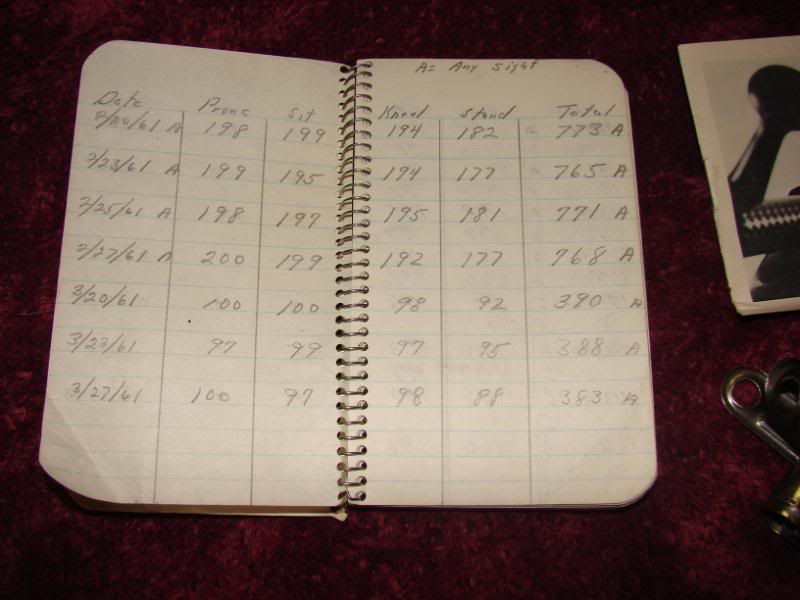 A= Any Sight
Date Prone Sit Kneel Stand Total
2/20/61 A 198 199 194 182 773 A
2/23/61 A 199 195 194 177 765 A
2/25/61 A 198 197 195 181 771 A
2/27/61 A 200 199 192 177 768 A
3/20/61 100 100 98 92 390 A
3/23/61 97 99 97 95 388 A
3/27/61 100 97 98 88 383 A